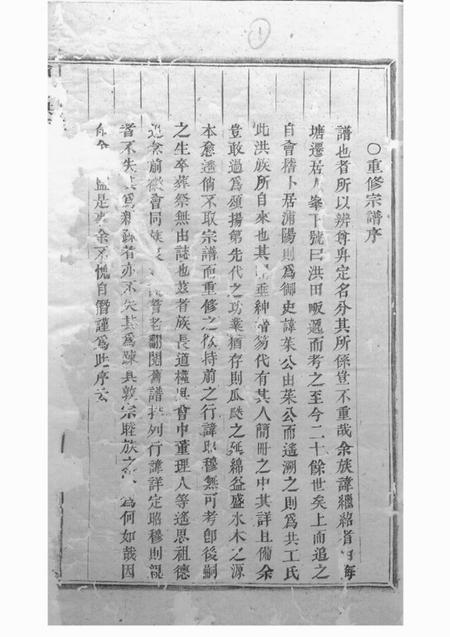 ①
〇重修宗譜序
譜也者所以辨尊卑定名分其所係豈不重哉余族諱繼紹者由海
塘遷居人峯下號曰洪田畈遞而考之至今二十餘世矣上而追之
自會稽卜居浦陽則為御史諱茱公由茱公而遙溯之則為共工氏
此洪族所自來也其間垂紳搢笏代有其人簡冊之中其詳且備余
豈敢過為頌揚第先代之功業猶存則瓜瓞之延綿益盛水木之源
本愈遠倘不取宗譜而重修之微特前之行諱昭穆無可考即後嗣
之生卒葬祭無由誌也茲者族長道權具會中董理人等遙思祖德
追念前徽會同族長耆老翻閱舊譜排列行諱詳定昭穆則親
者不失其為親疎者亦不失其為疎具敦宗睦族之為何如哉因
余是末余不愧自僭謹為此序云